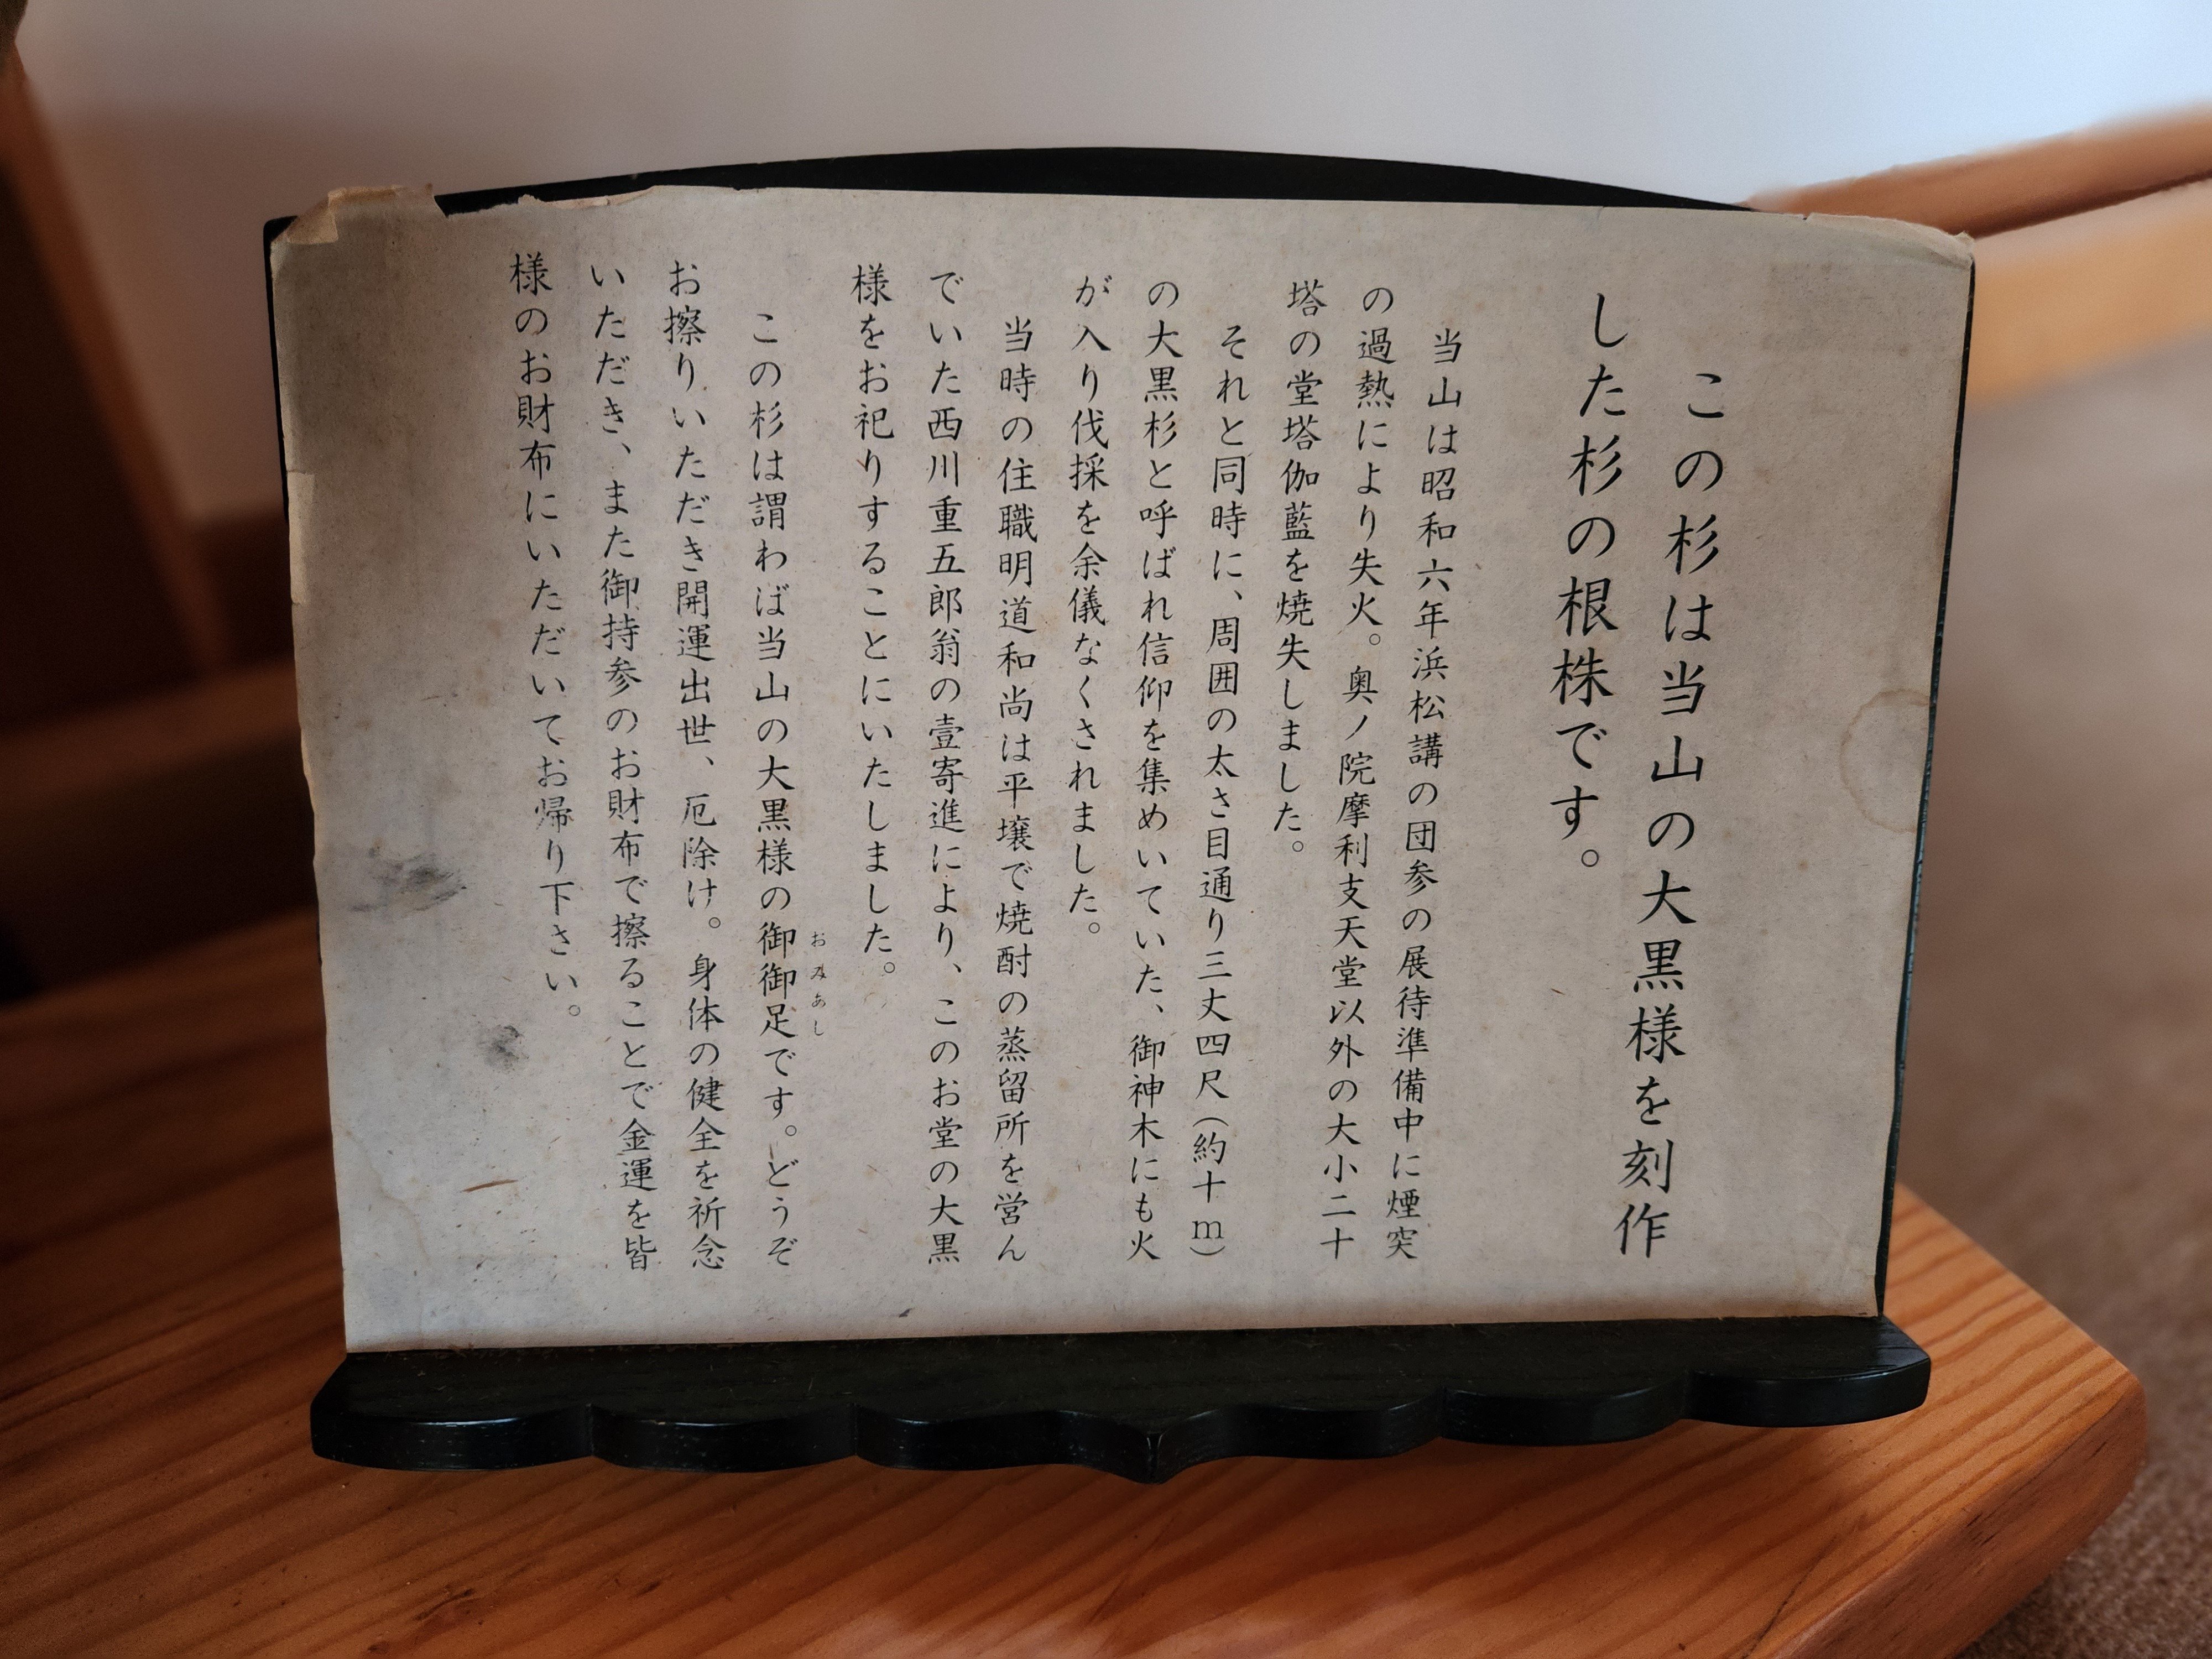 この杉は当山の大黒様を刻作
した杉の根株です。
当山は昭和六年浜松講の団参の展待準備中に煙突
の過熱により失火。奥ノ院摩利支天堂以外の大小二十
塔の堂塔伽藍を焼失しました。
それと同時に、周囲の太さ目通り三丈四尺（約十m）
の大黒杉と呼ばれ信仰を集めいていた、御神木にも火
が入り伐採を余儀なくされました。
当時の住職明道和尚は平壌で焼酎の蒸留所を営ん
でいた西川重五郎翁の壹寄進により、このお堂の大黒
様をお祀りすることにいたしました。
この杉は謂わば当山の大黒様の御御足です。どうぞ
おみあし
お擦りいただき開運出世、厄除け。身体の健全を祈念
いただき、また御持参のお財布で擦ることで金運を皆
様のお財布にいただいてお帰り下さい。